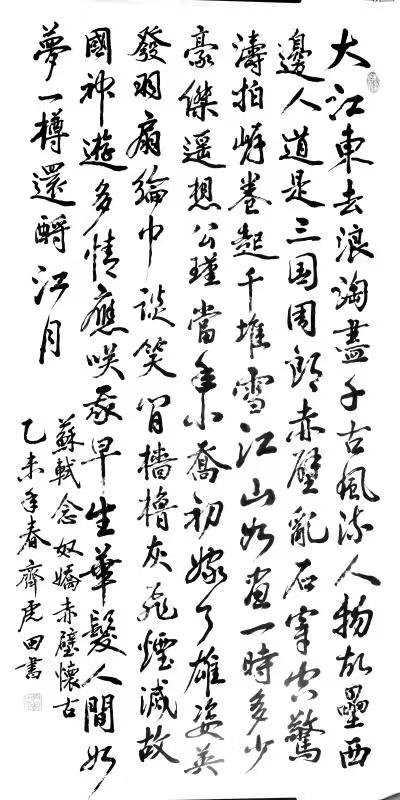 大江東去浪淘盡千古風流人物故壘西
邊人道是三国周郎赤壁亂石穿空驚
濤拍岸卷起千堆雪江山如畫一時多少
豪傑遥想公瑾當年小喬初嫁了雄姿英
發羽扇綸巾談笑间檣櫓灰飛煙滅故
國神遊多情應咲我早生華髮人間如
夢一樽還酹江月
蘇軾念奴嬌赤壁懷古
乙未年春齊虎田書